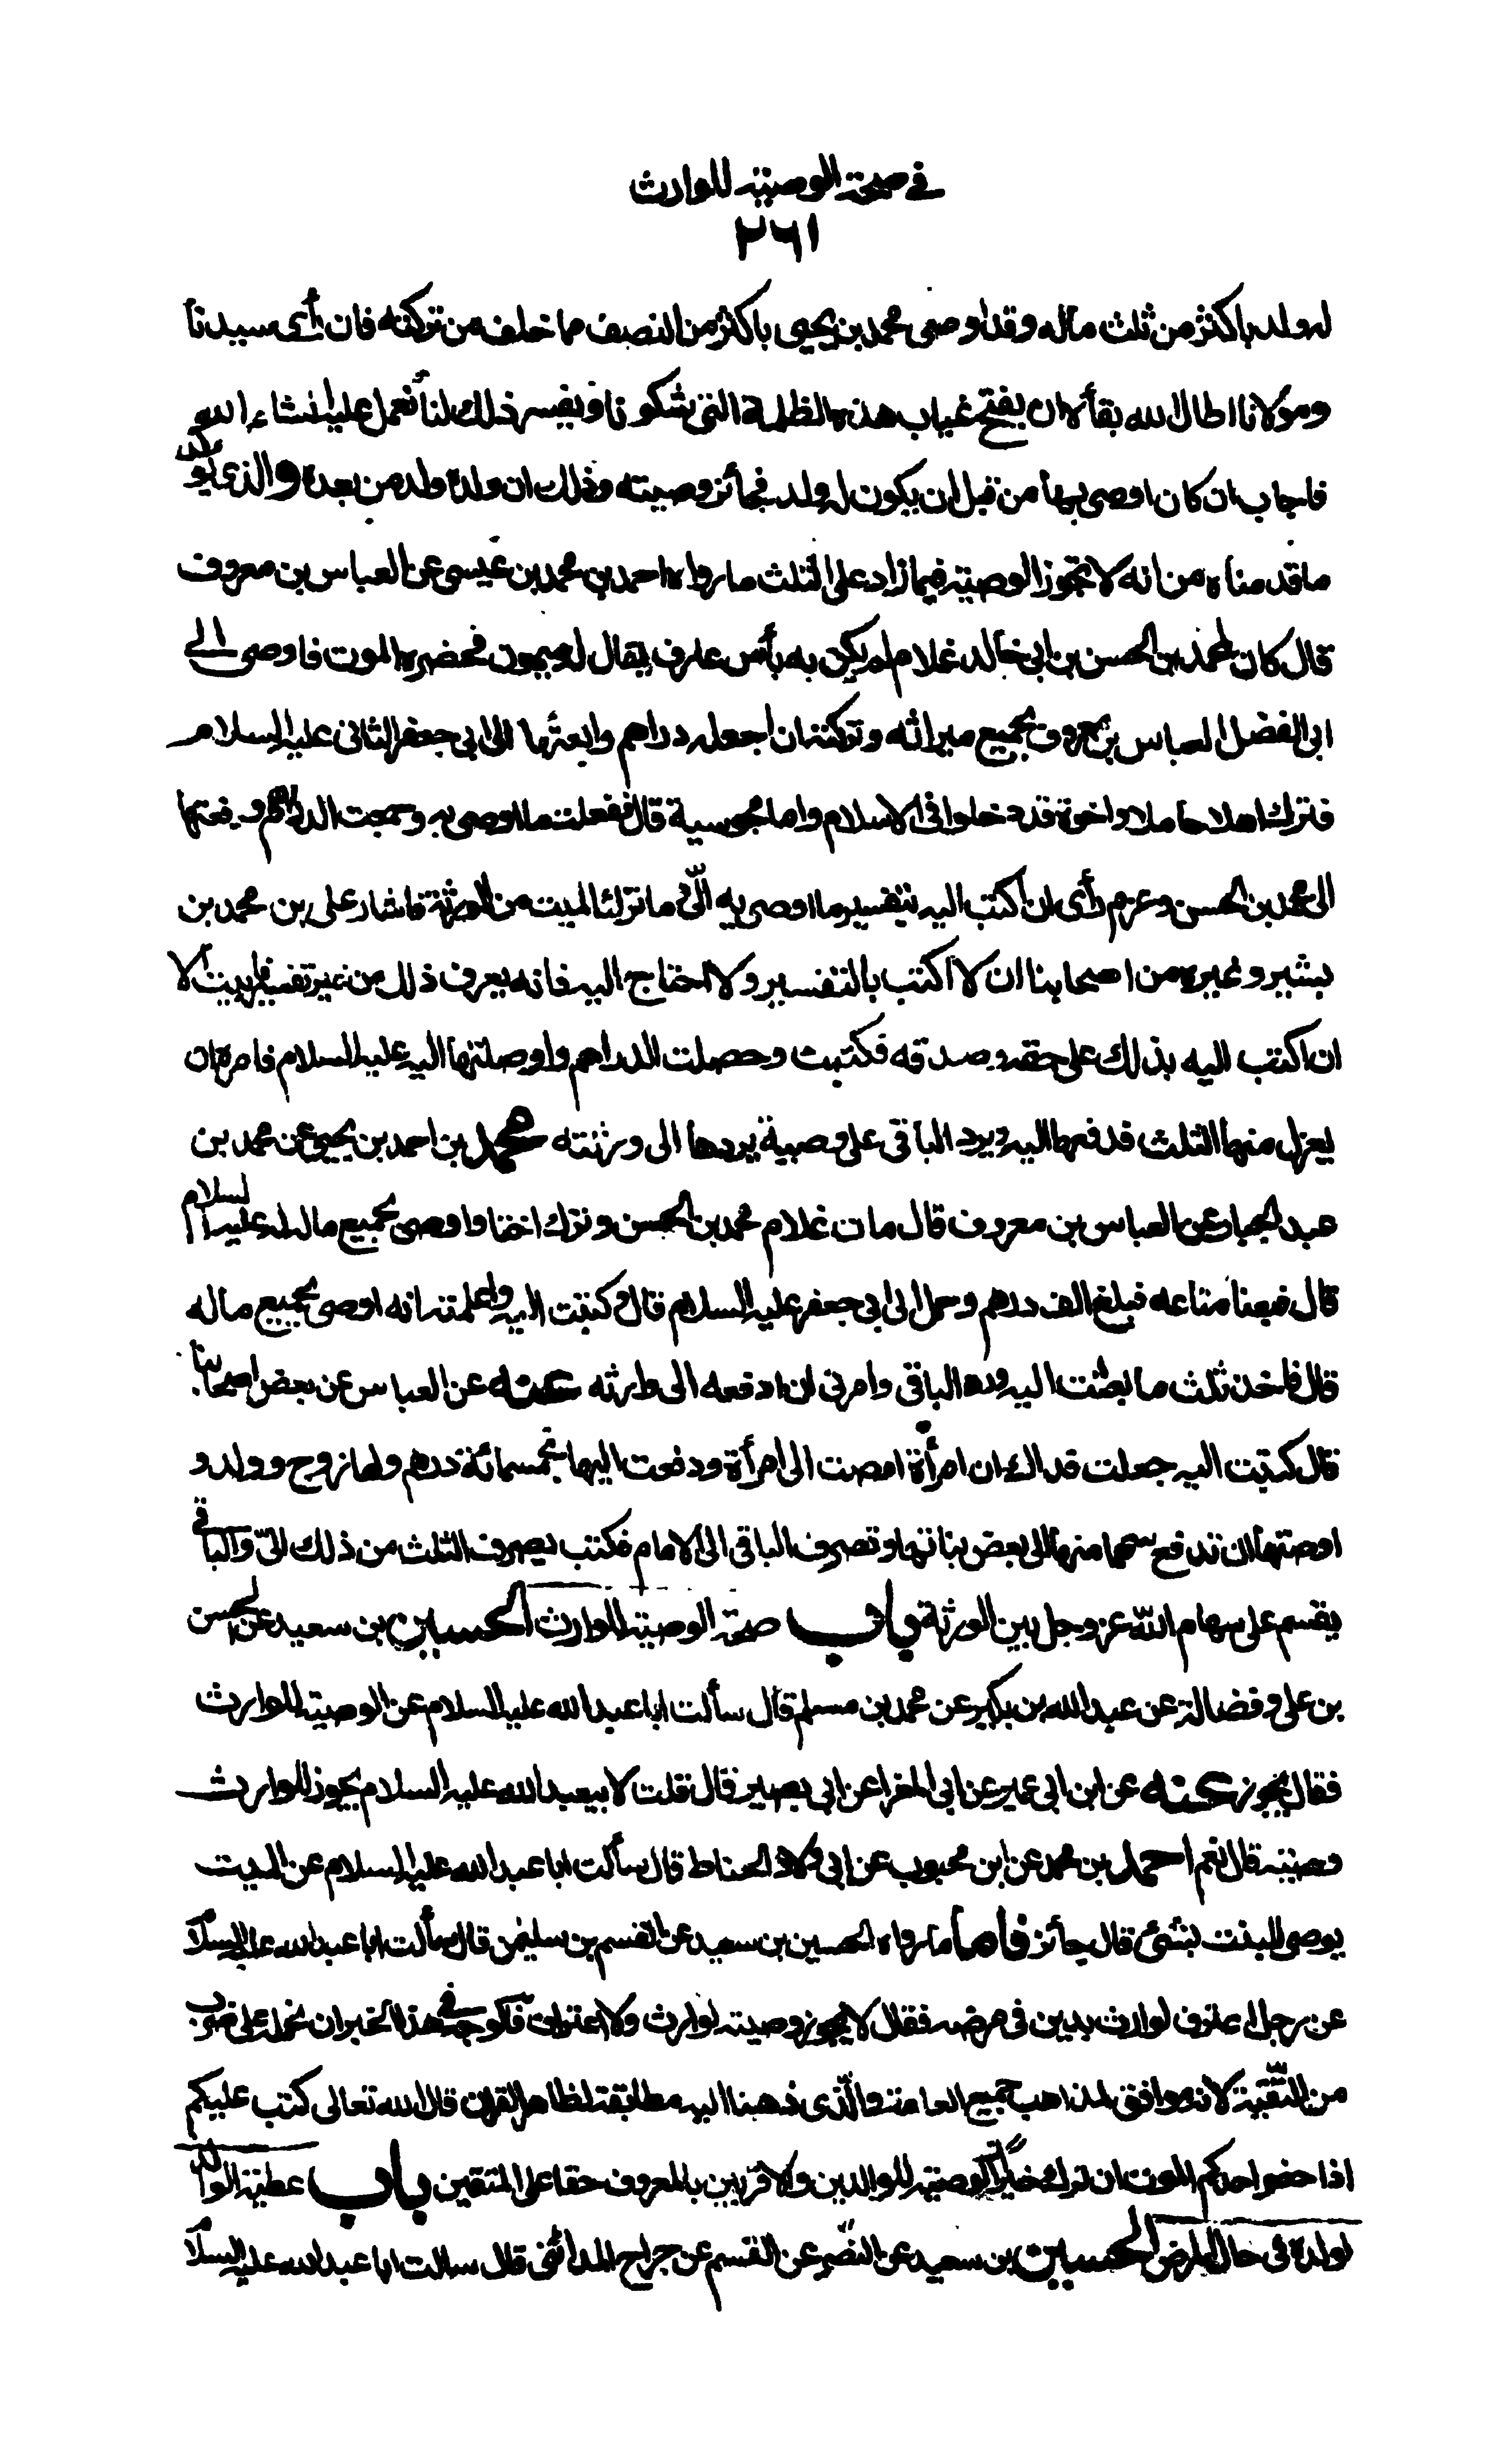 في صحة الوصية للوارث
٢٦١
له ولد باكثر من ثلث ماله وقد اوصى محمد بن يحيى باكثر من النصف مما خلف من تركته فان رأى سيدنا
ومولانا اطال الله بقأه ان يفتح غياب هذه الظلمة التى شكونا ويفسر ذلك لنا نعمل عليه انشاء الله
فاجاب ان كان اوصى بها من قبل ان يكون له ولد فجائز وصيته وذلك ان ولده ولد من بعده والذى يؤكد
ما قدمناه من انه لا تجوز الوصية فيما زاد على الثلث ما رواه احمد بن محمد بن عيسى عن العباس بن معروف
قال كان لمحمد بن الحسن بن ابى خالد غلام لم يكن به بأس عارف يقال له ميمون فحضره الموت فاوصى الى
ابى الفضل العباس بن معروف بجميع ميراثه وتركته ان اجعله دراهم وابعث بها الى ابى جعفر الثانى عليه السلام
فترك اهلا حاملا واخوة قد دخلوا فى الاسلام واما مجوسية قال ففعلت ما اوصى به وجمعت الدراهم ودفعتها
الى محمد بن الحسن وعزم رأى ان اكتب اليه بتفسير ما اوصى به الىّ وما ترك الميت من الورثة فاشار على بن محمد بن
بشير وغيره من اصحابنا ان لا اكتب بالتفسير ولا احتاج اليه فانه يعرف ذلك من غير تفسير فابيت الا
ان اكتب اليه بذلك على حقه وصدقه فكتبت وحصلت الدراهم واوصلتها اليه عليه السلام فامره ان
يعزل منها الثلث فدفعها اليه ويرد الباقى على وصية يردها الى ورثته محمد بن احمد بن يحيى عن محمد بن
عبد الجبار عن العباس بن معروف قال مات غلام محمد بن الحسن وترك اختا واوصى بجميع ماله له عليه السلام
قال فبعنا متاعه فبلغ الف درهم وحمل الى ابى جعفر عليه السلام قال وكتبت اليه واعلمته انه اوصى بجميع ماله
قال فاخذ ثلث ما بعثت اليه ورد الباقى وامرنى ان ادفعه الى وارثه عنه عن العباس عن بعض اصحابنا
قال كتبت اليه جعلت فداك ان امرأة اوصت الى امرأة ودفعت اليها خمسمائة درهم ولها زوج وولد و
اوصتها ان تدفع سهما منها الى بعض بناتها وتصرف الباقى الى الامام فكتب يصرف الثلث من ذلك الىّ والباقى
يقسم على سهام الله عز وجل بين الورثة باب صحة الوصية للوارث الحسين بن سعيد عن الحسن
بن على وفضالة عن عبد الله بن بكير عن محمد بن مسلم قال سألت ابا عبد الله عليه السلام عن الوصية للوارث
فقال يجوز عنه عن ابن ابى عمير عن ابى المغرا عن ابى بصير قال قلت لابيعبد الله عليه السلام يجوز للوارث
وصية قال نعم احمد بن محمد عن ابن محبوب عن ابى ولاد الحناط قال سألت ابا عبد الله عليه السلام عن الميت
يوصى للبنت بشئ قال جائز فاما ما رواه الحسين بن سعيد عن القسم بن سليمن قال سألت ابا عبد الله عليه السلام
عن رجل اعترف لوارث بدين فى مرضه فقال لا يجوز وصيته لوارث ولا اعتراف فالوجه فى هذا الخبر ان نحمله على ضرب
من التّقيّة لانه موافق لمذاهب جميع العامة والّذى ذهبنا اليه مطابقة لظاهر القران قال الله تعالى كتب عليكم
اذا حضر احدكم الموت ان ترك خيرا الوصية للوالدين والاقربين بالمعروف حقا على المتقين باب عطية الوالد
لولده فى حال المرض الحسين بن سعيد عن النضر عن القسم عن جراح المدائنى قال سالت ابا عبد الله عليه السلام